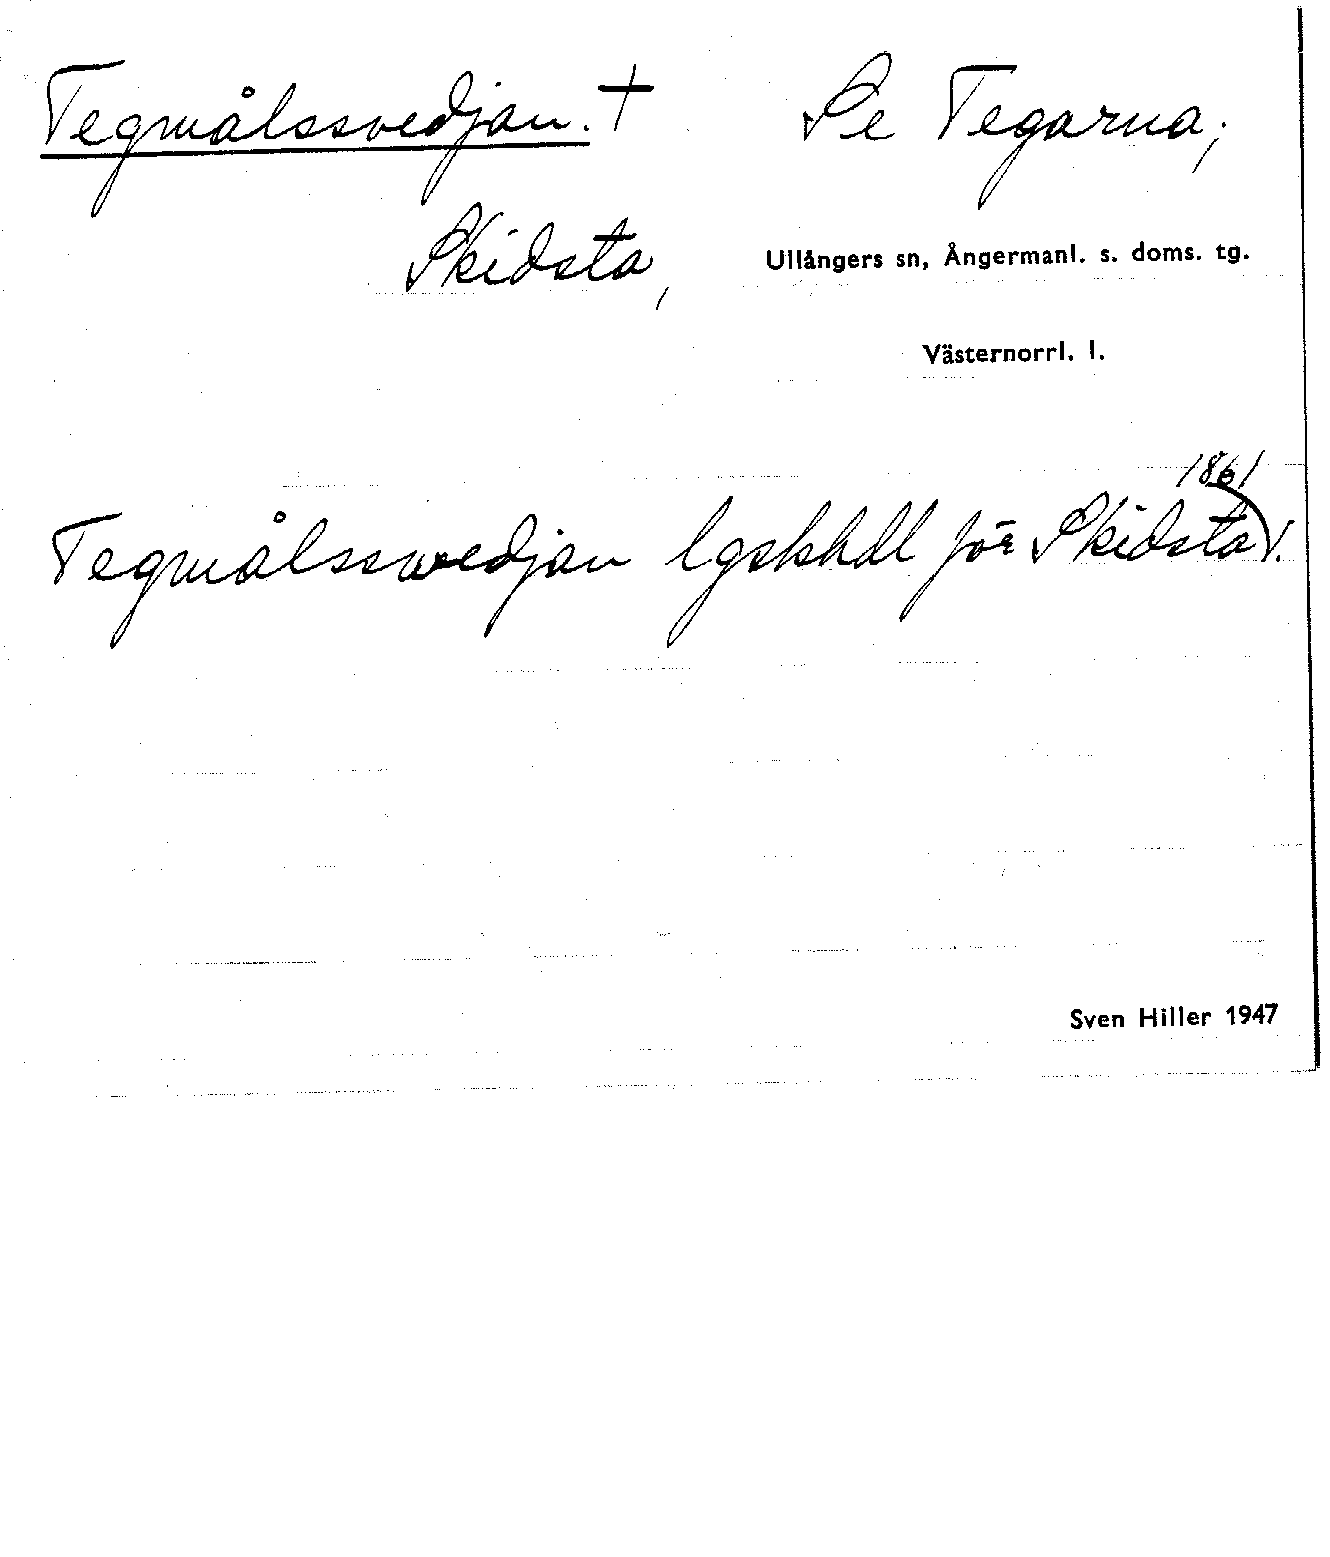 Tegmålssvedjan. † Se Tegarna,
Skidsta, Ullångers sn, Ångermanl. s. doms. tg.
Västernorrl. l.
1861
Tegmålsswedjan lgskhdl för Skidsta.
Sven Hiller 1947